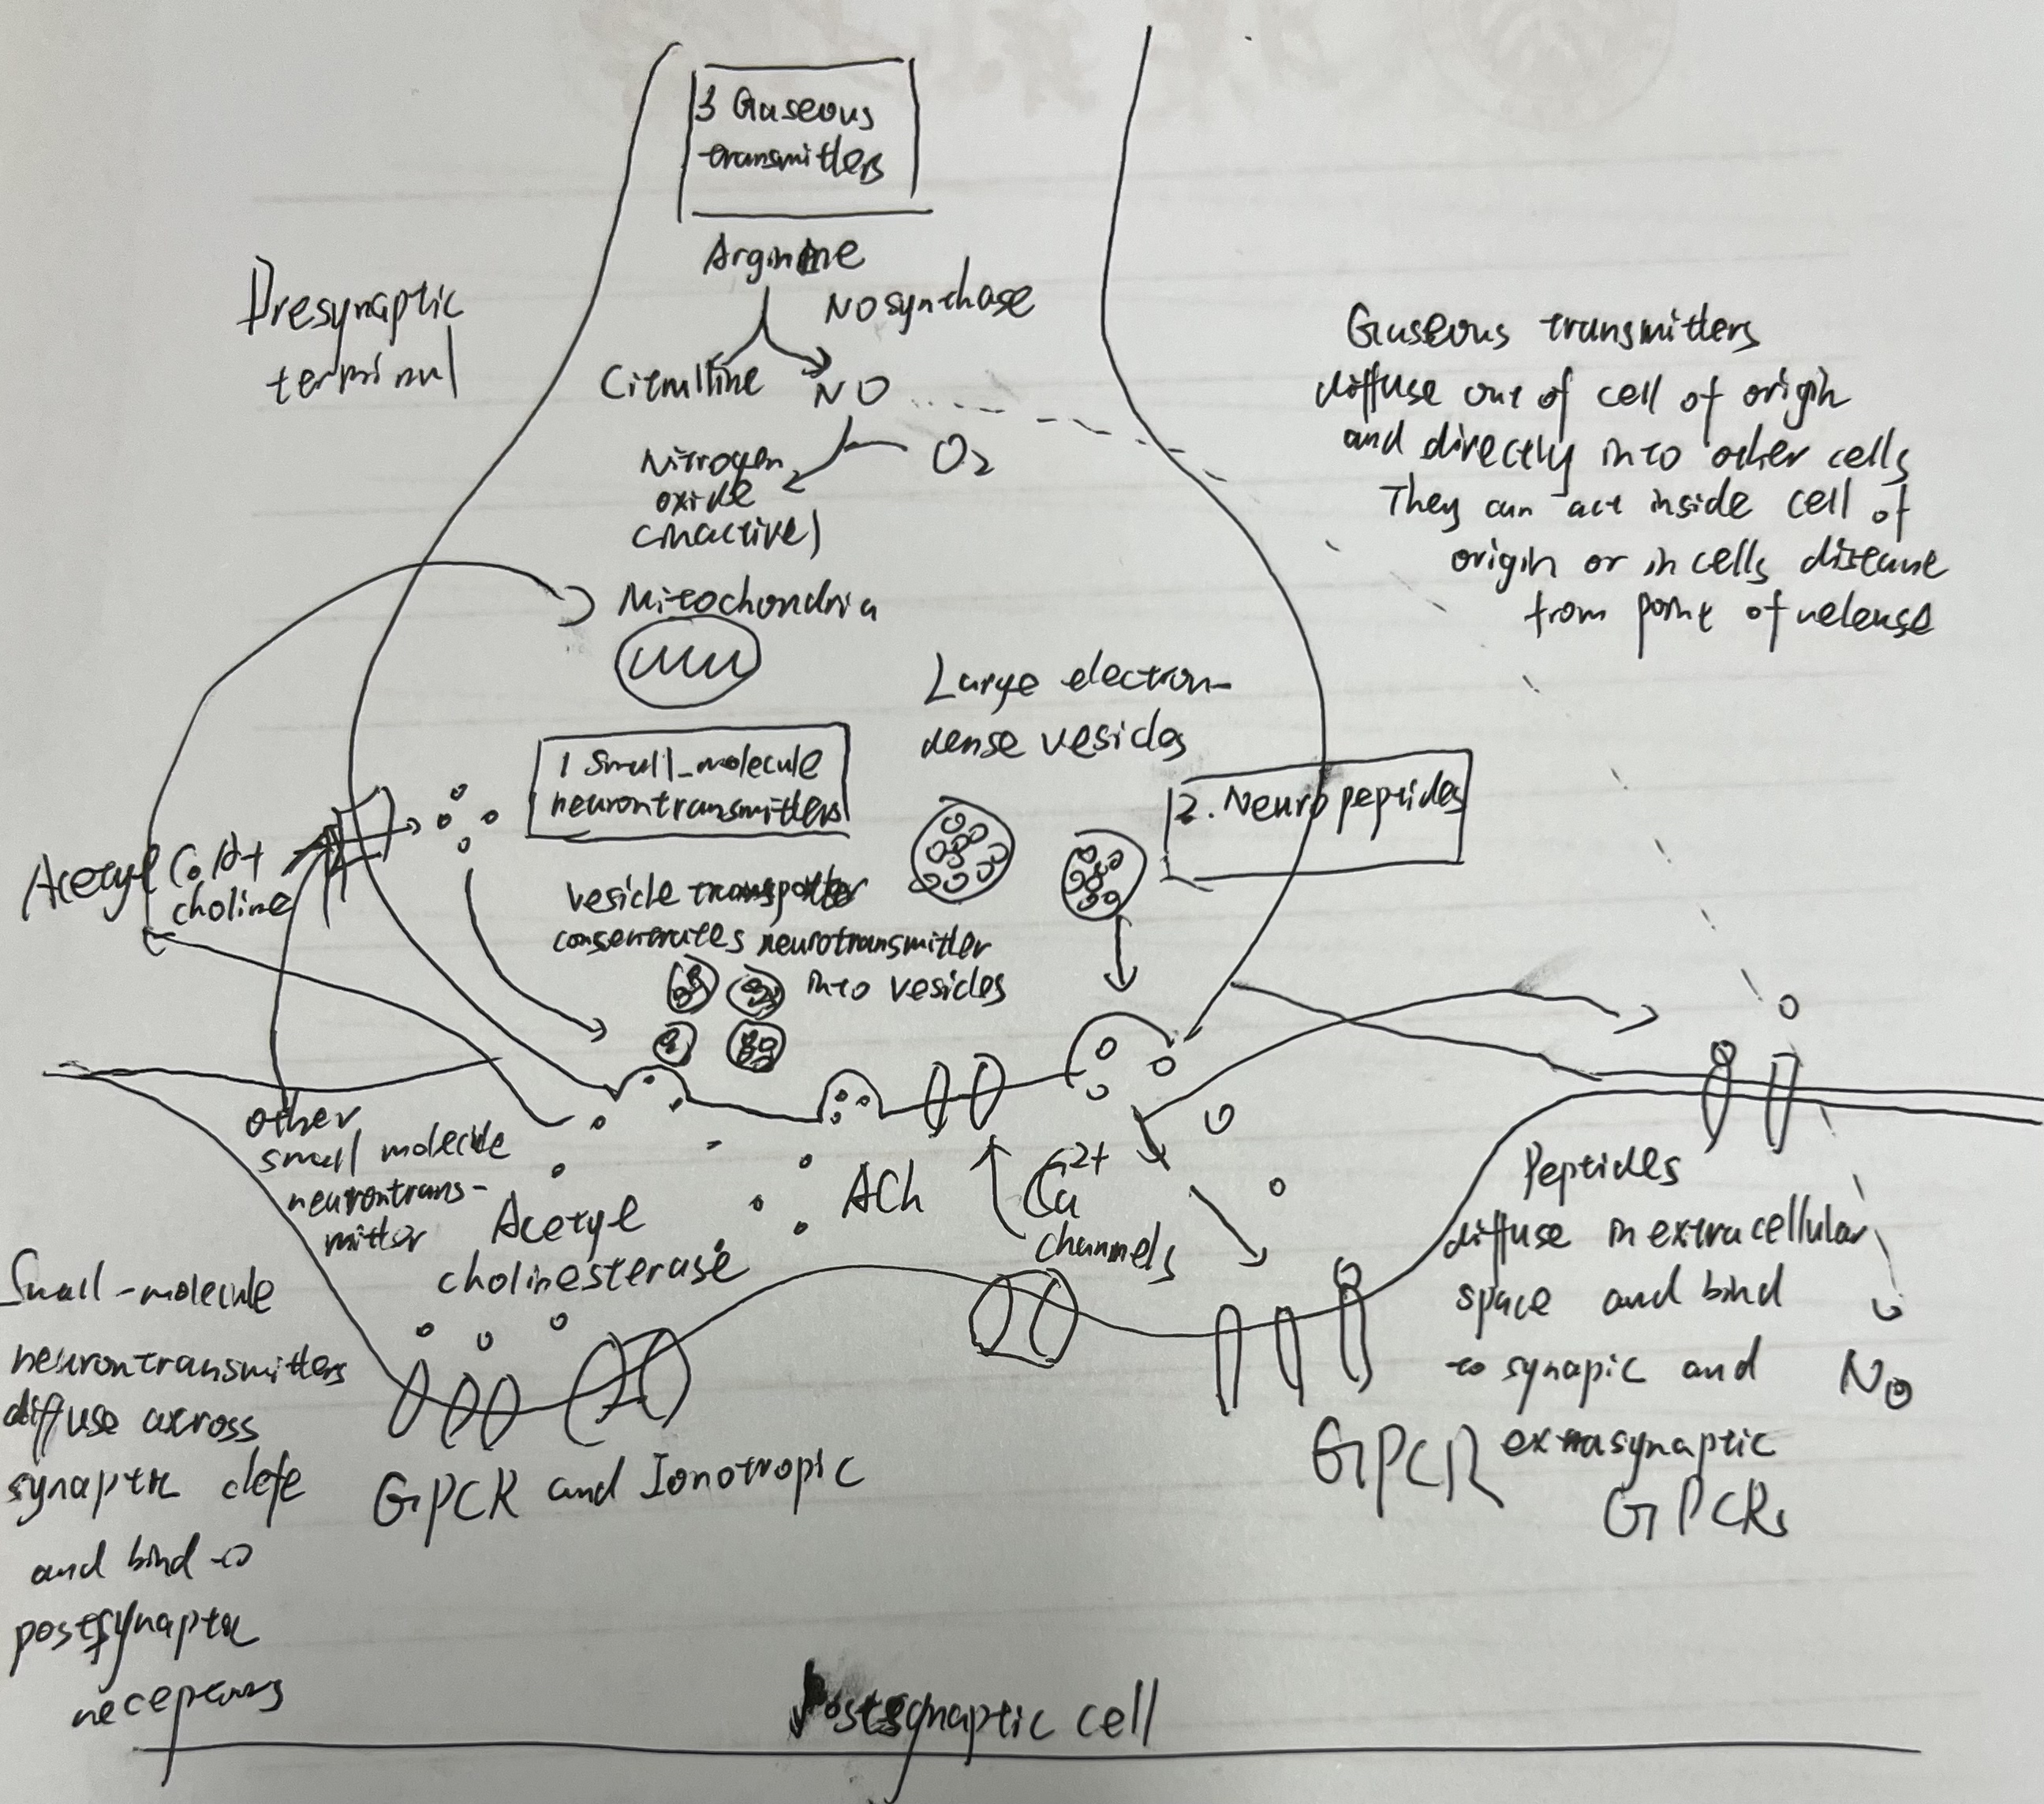 3 Gaseous
transmitters
Arginine
NO synthase
Citrulline
NO
O2
Nitrogen
oxide
(inactive)
Presynaptic
terminal
Gaseous transmitters
diffuse out of cell of origin
and directly into other cells
They can act inside cell of
origin or in cells distane
from point of release
Mitochondria
Large electron-
dense vesicles
1 Small-molecule
neurontransmitters
2. Neuropeptides
Acetyl CoA+
choline
vesicle transporter
consentrates neurotransmitter
into vesicles
other
small molecule
neurontrans-
mitter
Acetyl
cholinesterase
ACh
Ca2+
channels
Peptides
diffuse in extracellular
space and bind
to synapic and
extrasynaptic
GPCRs
NO
GPCR
Small-molecule
neurontransmitters
diffuse across
synaptic cleft
and bind to
postsynaptic
receptors
GPCR and Ionotropic
Postsynaptic cell